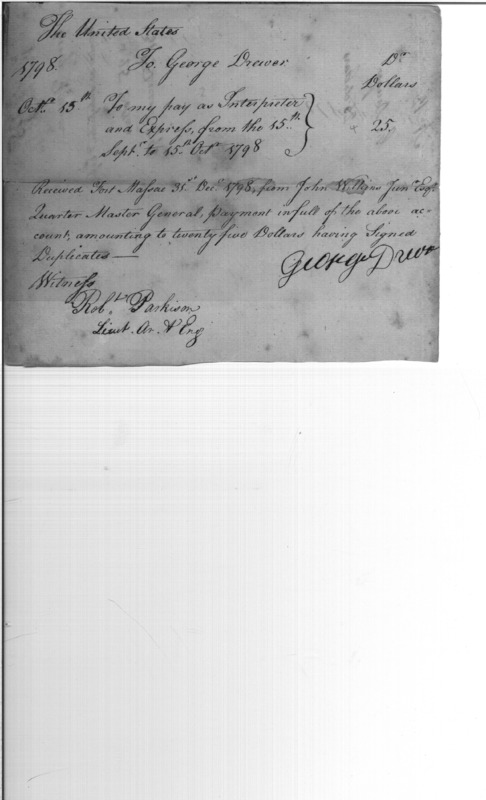 The United States
1798. To George Drewer Dr
Dollars
Octr 15th To my pay as Interpreter
and Express, from the 15th } 25.
Septr to 15th Octr 1798
Received Fort Massac 31st Decr 1798, from John Wilkins Junr Esqr
Quarter Master General, payment in full of the above ac-
count, amounting to twenty five Dollars having Signed
Duplicates —
George Drewr
Witness
Robt Parkison
Lieut. Ar. & Eng